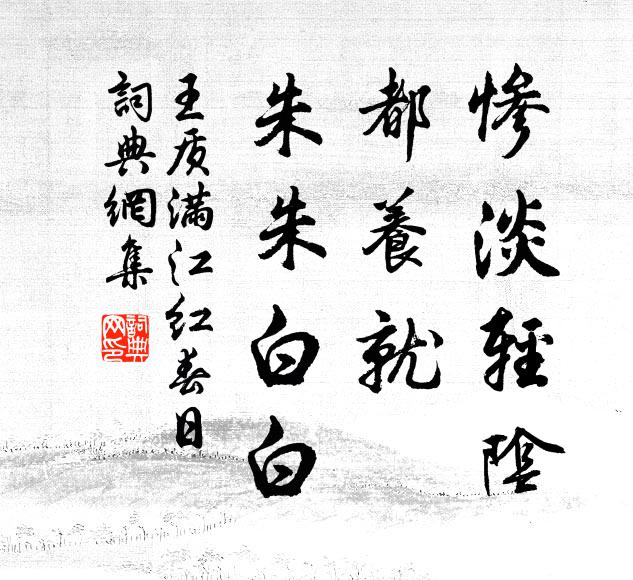 惨淡輕陰
都養就
朱朱白白
王质满江红春日
詞典網集
詞典網印